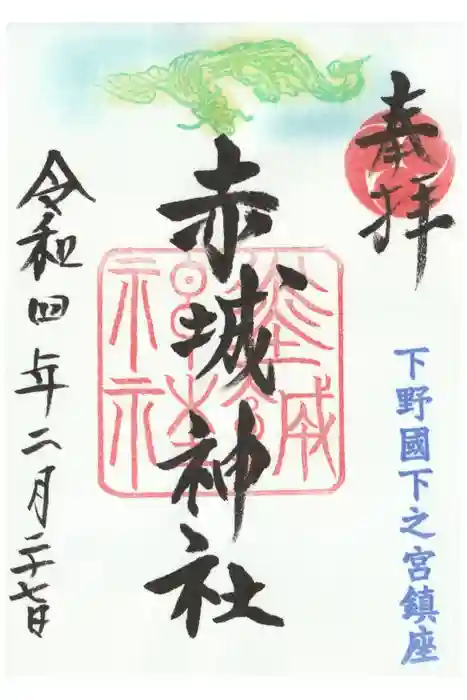 奉拝
下野國下之宮鎮座
赤城神社
令和四年二月二十七日